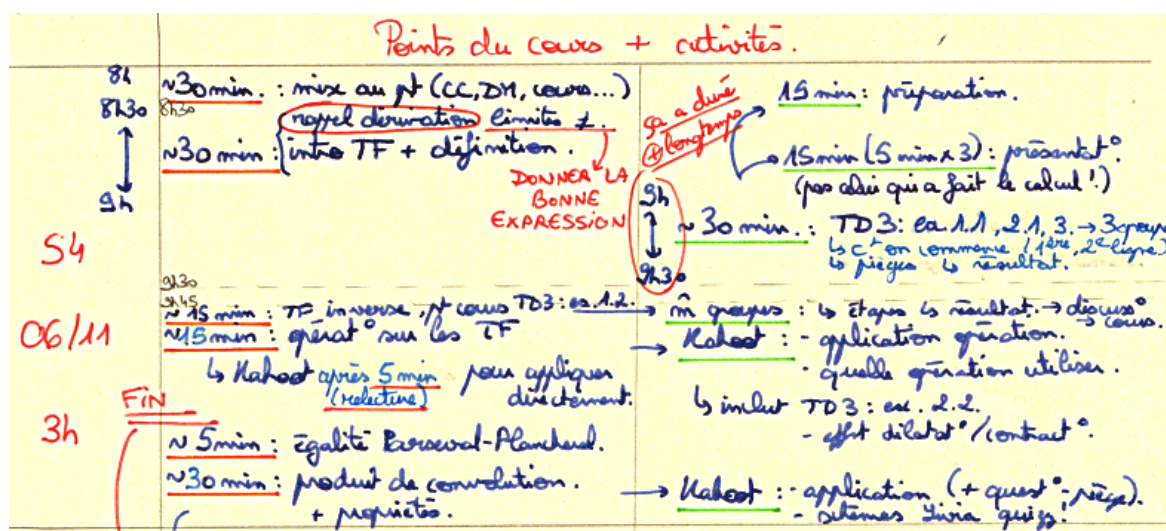 Points du cours + activités.
8h
~30 min. : mise au pt (CC, DM, cours...)
8h30
8h30
rappel dérivation limites ≠.
~30 min : intro TF + définition.
9h
DONNER LA
BONNE
EXPRESSION
S4
06/11
3h
9h30
9h45
~15 min : TF inverse, pt cours TD3 : ex. 1.2.
~15 min : opérat° sur les TF
↳ Kahoot après 5 min pour appliquer
(relecture) directement.
FIN
~5min : égalité Parseval-Plancherel.
~30 min : produit de convolution.
+ propriétés.
ça a duré
+ longtemps
15 min : préparation.
15 min (5 min x 3) : présentat°.
(pas celui qui a fait le calcul !)
9h
~30 min. : TD3 : ex. 1.1, 2.1, 3. → 3 groupes
↳ ct on commence (1ère, 2e ligne)
↳ pièges ↳ résultat.
9h30
→ m̂ groupes : ↳ étapes ↳ résultat. → discuss°
→ cours.
→ Kahoot : - application opération.
- quelle opération utiliser.
↳ inclut TD3 : ex. 2.2.
- effet dilatat°/contract°.
→ Kahoot : - application (+ quest° piège).
- schémas Livia quizz !